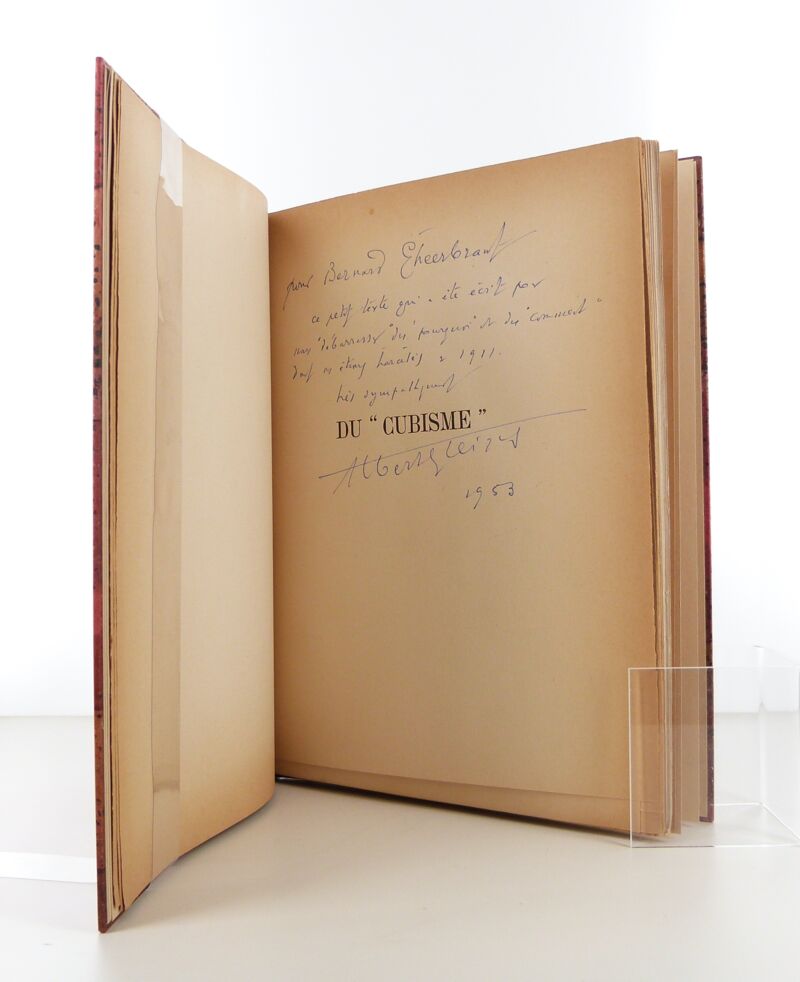 pour Bernard Gheerbrant
ce petit texte qui a été écrit par
nous "débarrasser" du "pourquoi" et du "comment"
dont on étions harcelés en 1911.
très sympathiquement
DU “ CUBISME ”
Albert Gleizes
1953